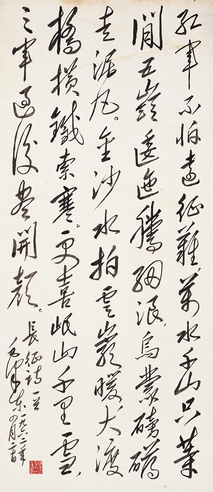 紅軍不怕遠征難萬水千山只等
閒五嶺逶迤騰細浪烏蒙磅礴
走泥丸。金沙水拍雲崖暖大渡
橋橫鐵索寒。更喜岷山千里雪
三軍過後盡開顏。
長征詩一首
毛澤東
一九六二年
四月